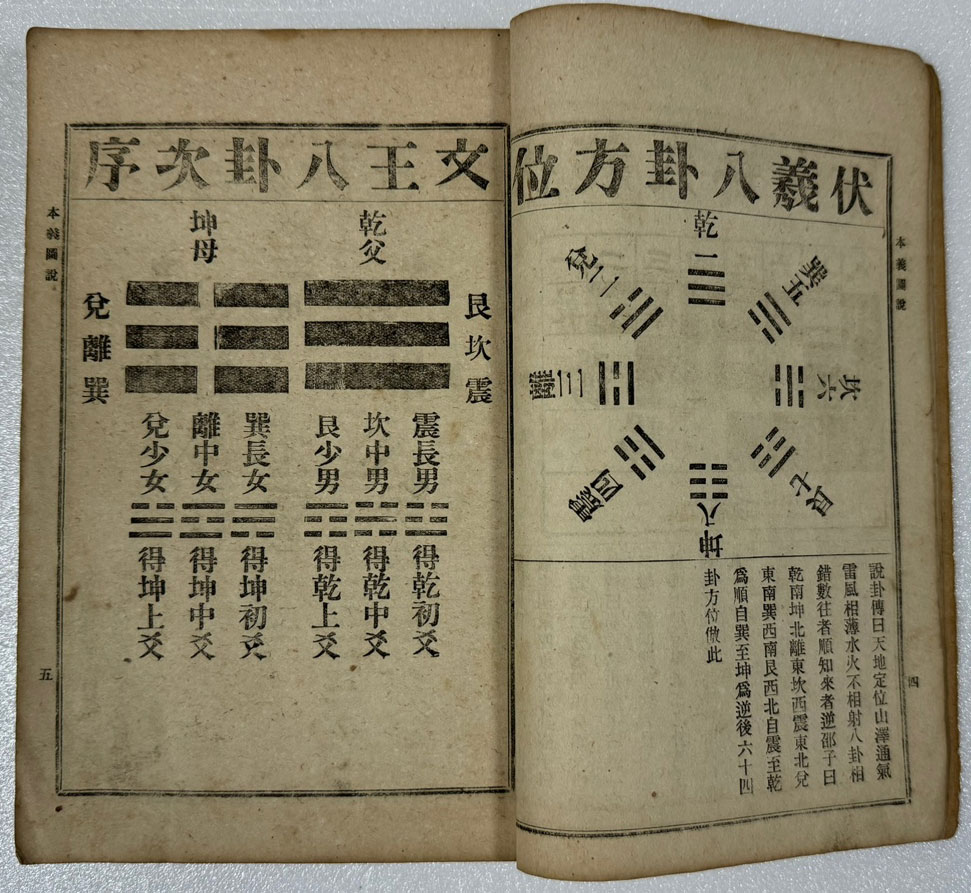 伏羲八卦方位
本義圖說
乾一
兌二
離三
震四
巽五
坎六
艮七
坤八
說卦傳曰天地定位山澤通氣
雷風相薄水火不相射八卦相
錯數往者順知來者逆邵子曰
乾南坤北離東坎西震東北兌
東南巽西南艮西北自震至乾
爲順自巽至坤爲逆後六十四
卦方位倣此
四
文王八卦次序
乾父
坤母
艮坎震
兌離巽
震長男
得乾初爻
坎中男
得乾中爻
艮少男
得乾上爻
巽長女
得坤初爻
離中女
得坤中爻
兌少女
得坤上爻
本義圖說
五